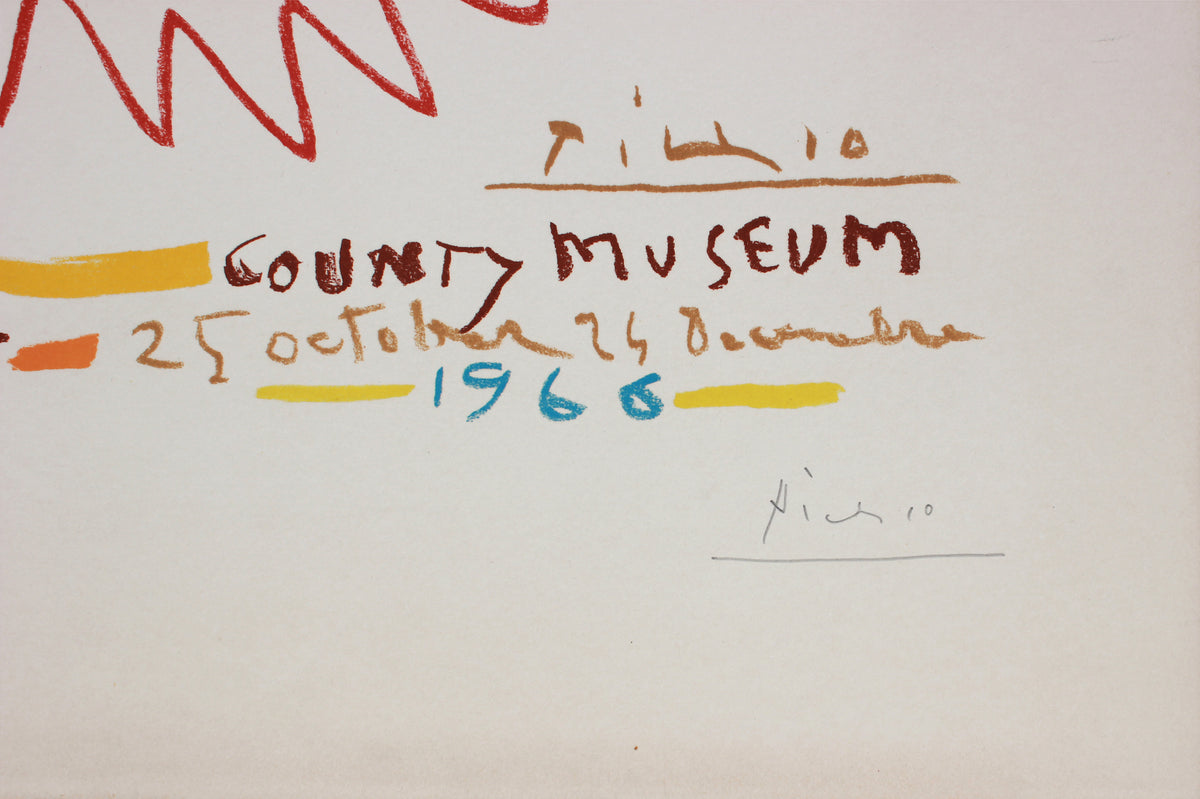 Picasso
COUNTY MUSEUM
25 october 24 Decembre
1966
Picasso